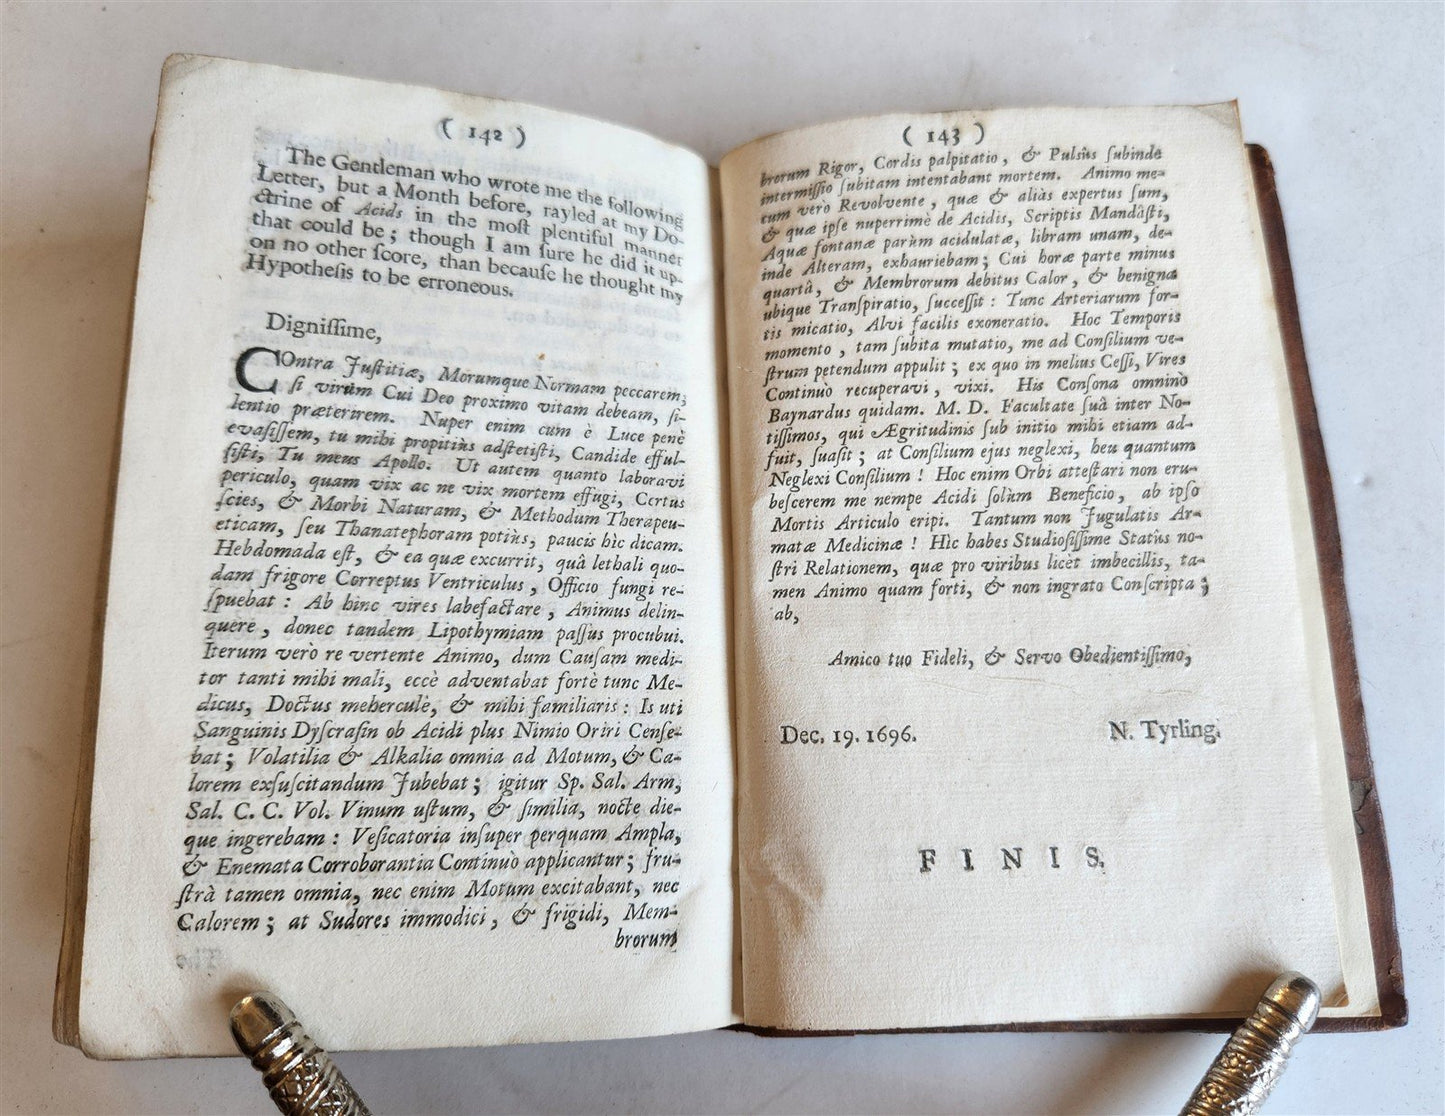 ( 142 )
The Gentleman who wrote me the following
Letter, but a Month before, rayled at my Do-
ctrine of Acids in the moſt plentiful manner
that could be; though I am ſure he did it up-
on no other ſcore, than becauſe he thought my
Hypotheſis to be erroneous.
Digniſſime,
COntra Juſtitiæ, Morumque Normam peccarem,
ſi virùm Cui Deo proximo vitam debeam, ſi-
lentio præterirem. Nuper enim cum è Luce penè
evaſiſſem, tu mihi propitiùs adſtetiſti, Candide efful-
ſiſti, Tu meus Apollo. Ut autem quanto laboravi
periculo, quam vix ac ne vix mortem effugi, Certus
ſcies, & Morbi Naturam, & Methodum Therapeu-
eticam, ſeu Thanatephoram potiùs, paucis hìc dicam.
Hebdomada eſt, & ea quæ excurrit, quâ lethali quo-
dam frigore Correptus Ventriculus, Officio fungi re-
ſpuebat : Ab hinc vires labefactare, Animus delin-
quere, donec tandem Lipothymiam paſſus procubui.
Iterum verò re vertente Animo, dum Cauſam medi-
tor tanti mihi mali, eccè adventabat fortè tunc Me-
dicus, Doctus mehercule, & mihi familiaris : Is uti
Sanguinis Dyſcraſin ob Acidi plus Nimio Oriri Cenſe-
bat; Volatilia & Alkalia omnia ad Motum, & Ca-
lorem exſuſcitandum Jubebat; igitur Sp. Sal. Arm,
Sal. C. C. Vol. Vinum uſtum, & ſimilia, nocte die-
que ingerebam : Veſicatoria inſuper perquam Ampla,
& Enemata Corroborantia Continuò applicantur; fru-
ſtrà tamen omnia, nec enim Motum excitabant, nec
Calorem; at Sudores immodici, & frigidi, Mem-
brorum
( 143 )
brorum Rigor, Cordis palpitatio, & Pulsûs ſubinde
intermiſſio ſubitam intentabant mortem. Animo me-
cum verò Revolvente, quæ & aliàs expertus ſum,
& quæ ipſe nuperrimè de Acidis, Scriptis Mandâſti,
Aquæ fontanæ parùm acidulatæ, libram unam, de-
inde Alteram, exhauriebam; Cui horæ parte minus
quartâ, & Membrorum debitus Calor, & benigna
ubique Tranſpiratio, ſucceſſit : Tunc Arteriarum for-
tis micatio, Alvi facilis exoneratio. Hoc Temporis
momento, tam ſubita mutatio, me ad Conſilium ve-
ſtrum petendum appulit; ex quo in melius Ceſſi, Vires
Continuò recuperavi, vixi. His Conſona omninò
Baynardus quidam. M. D. Facultate ſuâ inter No-
tiſſimos, qui Ægritudinis ſub initio mihi etiam ad-
fuit, ſuaſit; at Conſilium ejus neglexi, heu quantum
Neglexi Conſilium ! Hoc enim Orbi atteſtari non eru-
beſcerem me nempe Acidi ſolùm Beneficio, ab ipſo
Mortis Articulo eripi. Tantum non Jugulatis Ar-
matæ Medicinæ ! Hìc habes Studioſiſſime Statûs no-
ſtri Relationem, quæ pro viribus licèt imbecillis, ta-
men Animo quam forti, & non ingrato Conſcripta;
ab,
Amico tuo Fideli, & Servo Obedientiſſimo,
Dec. 19. 1696. N. Tyrling.
FINIS.